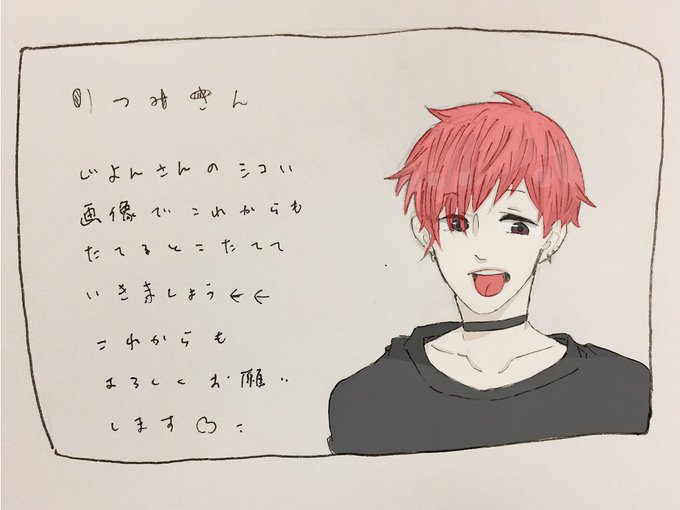 つみきん
じよんさんのシコい
画像でこれからも
たてるとこたてて
いきましょう←←
これからも
よろしくお願い
します